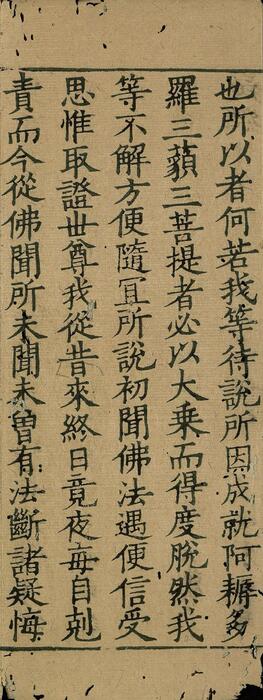 也所以者何若我等待說所因成就阿耨多
羅三藐三菩提者必以大乗而得度脫然我
等不解方便隨冝所說初聞佛法遇便信受
思惟取證世尊我從昔來終日竟夜每自剋
責而今從佛聞所未聞未曽有法斷諸疑悔